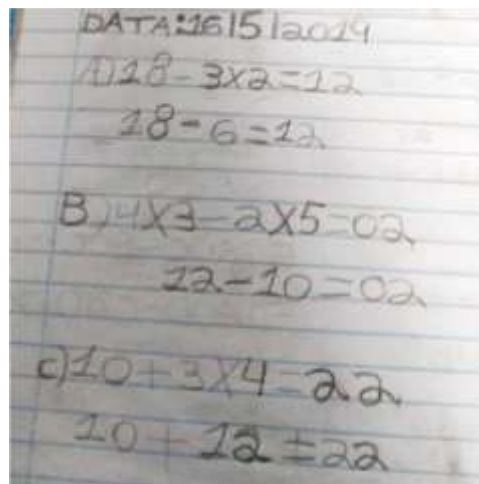 DATA:16/5/2019
A)18-3x2=12
18-6=12
B)4x3-2x5=02
12-10=02
c)10+3x4=22
10+12=22